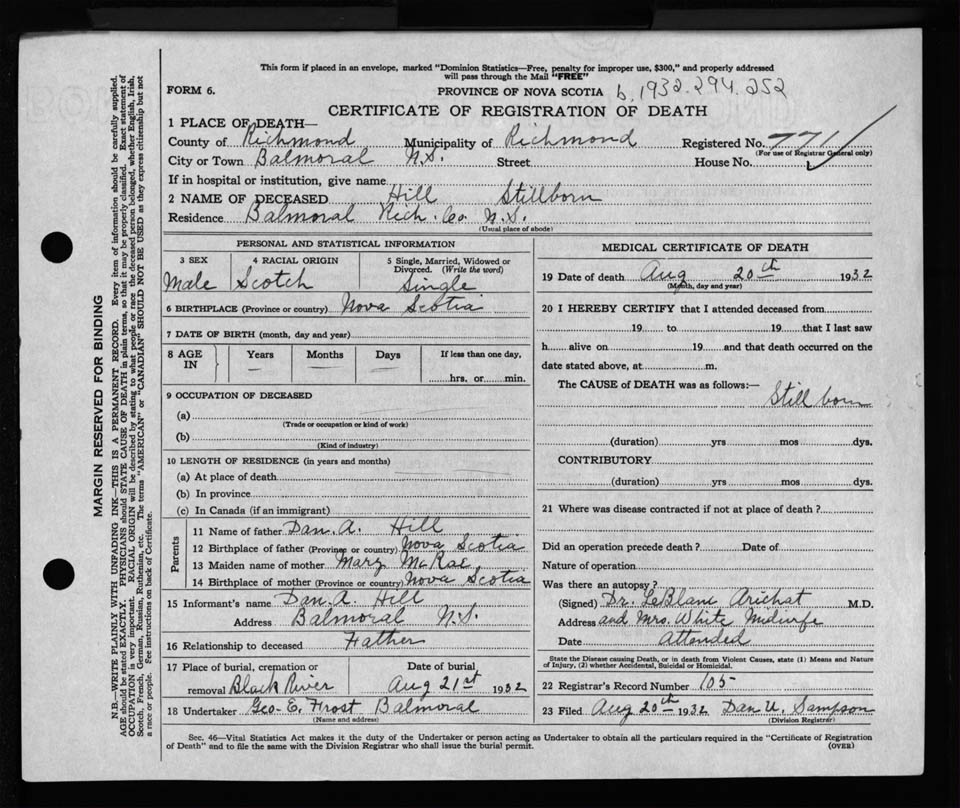 This form if placed in an envelope, marked "Dominion Statistics—Free, penalty for improper use, $300," and properly addressed
will pass through the Mail "FREE"
FORM 6.
PROVINCE OF NOVA SCOTIA
b. 1932.294.252
CERTIFICATE OF REGISTRATION OF DEATH
1 PLACE OF DEATH—
County of Richmond Municipality of Richmond Registered No. 771
(For use of Registrar General only)
City or Town Balmoral N.S. Street House No.
If in hospital or institution, give name
2 NAME OF DECEASED Hill Stillborn
Residence Balmoral Rich. Co. N.S.
(Usual place of abode)
PERSONAL AND STATISTICAL INFORMATION
3 SEX 4 RACIAL ORIGIN 5 Single, Married, Widowed or
Divorced. (Write the word)
Male Scotch Single
6 BIRTHPLACE (Province or country) Nova Scotia
7 DATE OF BIRTH (month, day and year)
8 AGE IN Years Months Days If less than one day,
— — — hrs. or min.
9 OCCUPATION OF DECEASED
(a)
(Trade or occupation or kind of work)
(b)
(Kind of industry)
10 LENGTH OF RESIDENCE (in years and months)
(a) At place of death
(b) In province
(c) In Canada (if an immigrant)
Parents
11 Name of father Dan. A. Hill
12 Birthplace of father (Province or country) Nova Scotia
13 Maiden name of mother Mary McRae
14 Birthplace of mother (Province or country) Nova Scotia
15 Informant's name Dan. A. Hill
Address Balmoral N.S.
16 Relationship to deceased Father
17 Place of burial, cremation or Date of burial
removal Black River Aug 21st 1932
18 Undertaker Geo. E. Frost Balmoral
(Name and address)
MEDICAL CERTIFICATE OF DEATH
19 Date of death Aug 20th 1932
(Month, day and year)
20 I HEREBY CERTIFY that I attended deceased from
19 to 19 that I last saw
h alive on 19 and that death occurred on the
date stated above, at m.
The CAUSE of DEATH was as follows:—
Still born
(duration) yrs mos dys.
CONTRIBUTORY
(duration) yrs mos dys.
21 Where was disease contracted if not at place of death?
Did an operation precede death? Date of
Nature of operation
Was there an autopsy?
(Signed) Dr. LeBlanc Arichat M.D.
Address and Mrs. White Midwife
Date attended
State the Disease causing Death, or in death from Violent Causes, state (1) Means and Nature
of Injury, (2) whether Accidental, Suicidal or Homicidal.
22 Registrar's Record Number 105
23 Filed Aug 20th 1932 Dan U. Sampson
(Division Registrar)
Sec. 46—Vital Statistics Act makes it the duty of the Undertaker or person acting as Undertaker to obtain all the particulars required in the "Certificate of Registration
of Death" and to file the same with the Division Registrar who shall issue the burial permit.
(OVER)
MARGIN RESERVED FOR BINDING
N.B.—WRITE PLAINLY WITH UNFADING INK—THIS IS A PERMANENT RECORD. Every item of information should be carefully supplied.
AGE should be stated EXACTLY. PHYSICIANS should STATE CAUSE OF DEATH in plain terms, so that it may be properly classified. Exact statement of
OCCUPATION is very important. RACIAL ORIGIN will be described by stating to what people or race the deceased person belonged, whether English, Irish,
Scotch, French, German, Russian, Ruthenian, etc. The terms "AMERICAN" or "CANADIAN" SHOULD NOT BE USED as they express citizenship but not
a race or people. See instructions on back of Certificate.